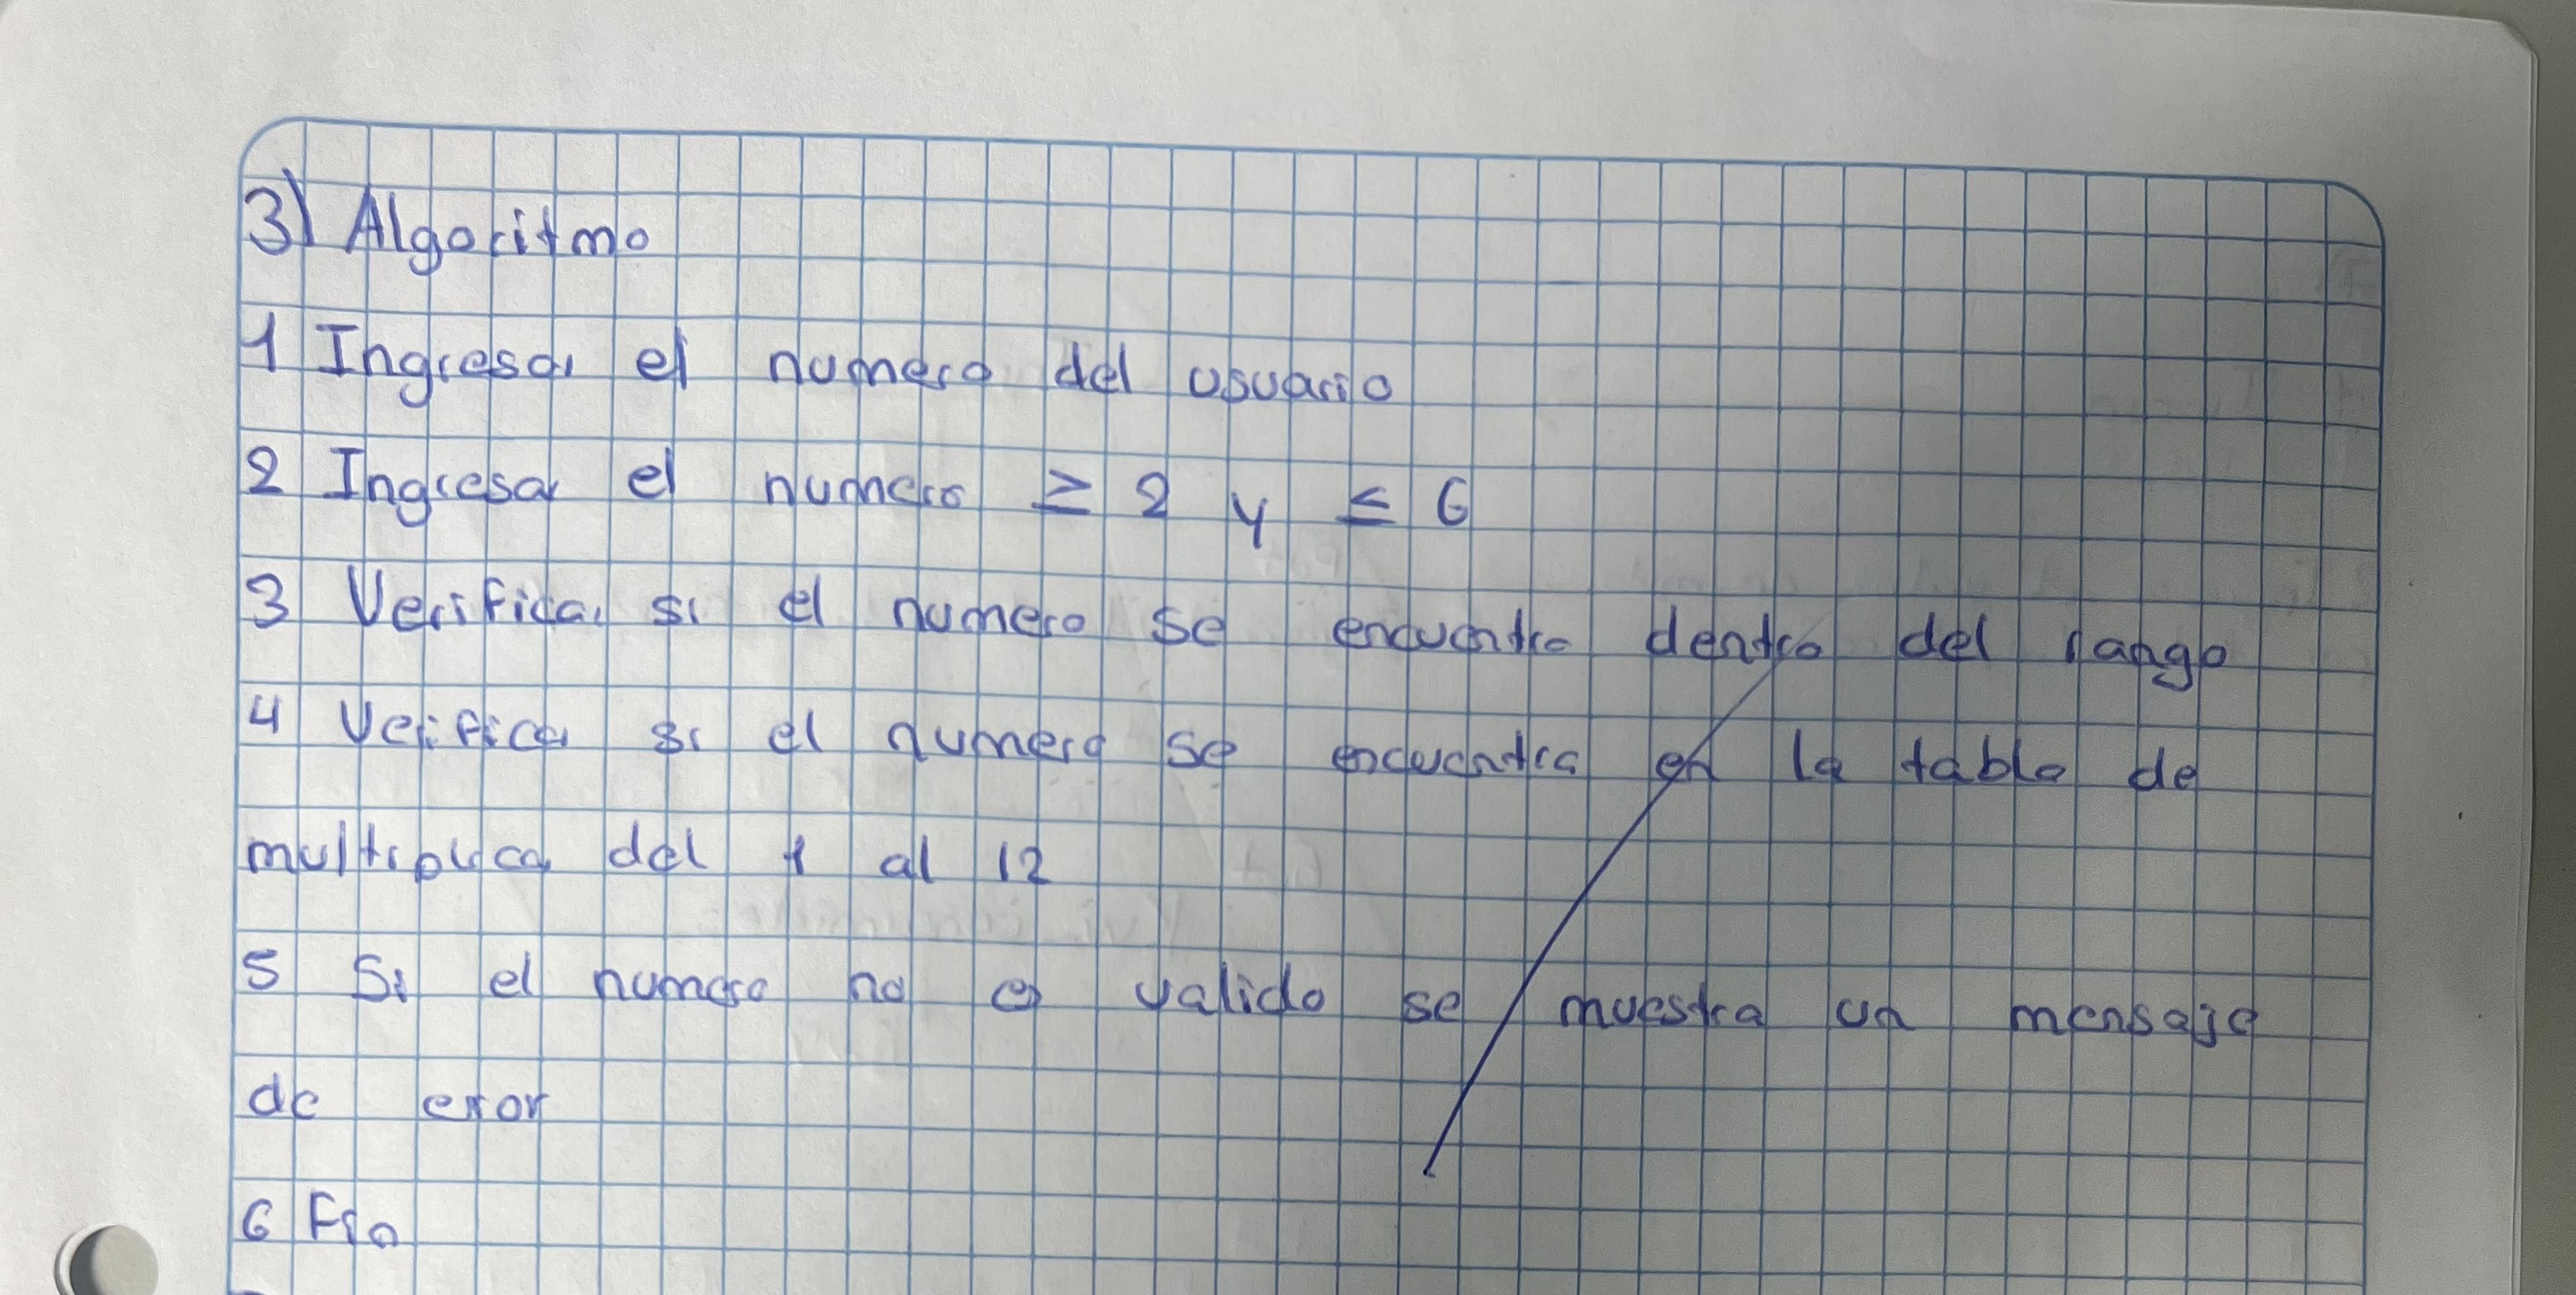 3) Algoritmo
1 Ingresar el numero del usuario
2 Ingresar el numero ≥ 2 y ≤ 6
3 Verificar si el numero se encuentra dentro del rango
4 Verificar si el numero se encuentra en la tabla de
multiplicar del 1 al 12
5 Si el numero no es valido se muestra un mensaje
de error
6 Fin